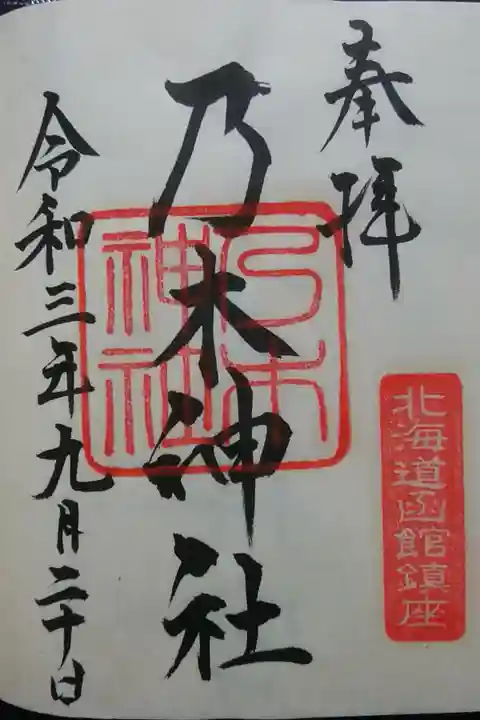 奉拝
北海道函館鎮座
乃木神社
乃木神社
令和三年九月二十日